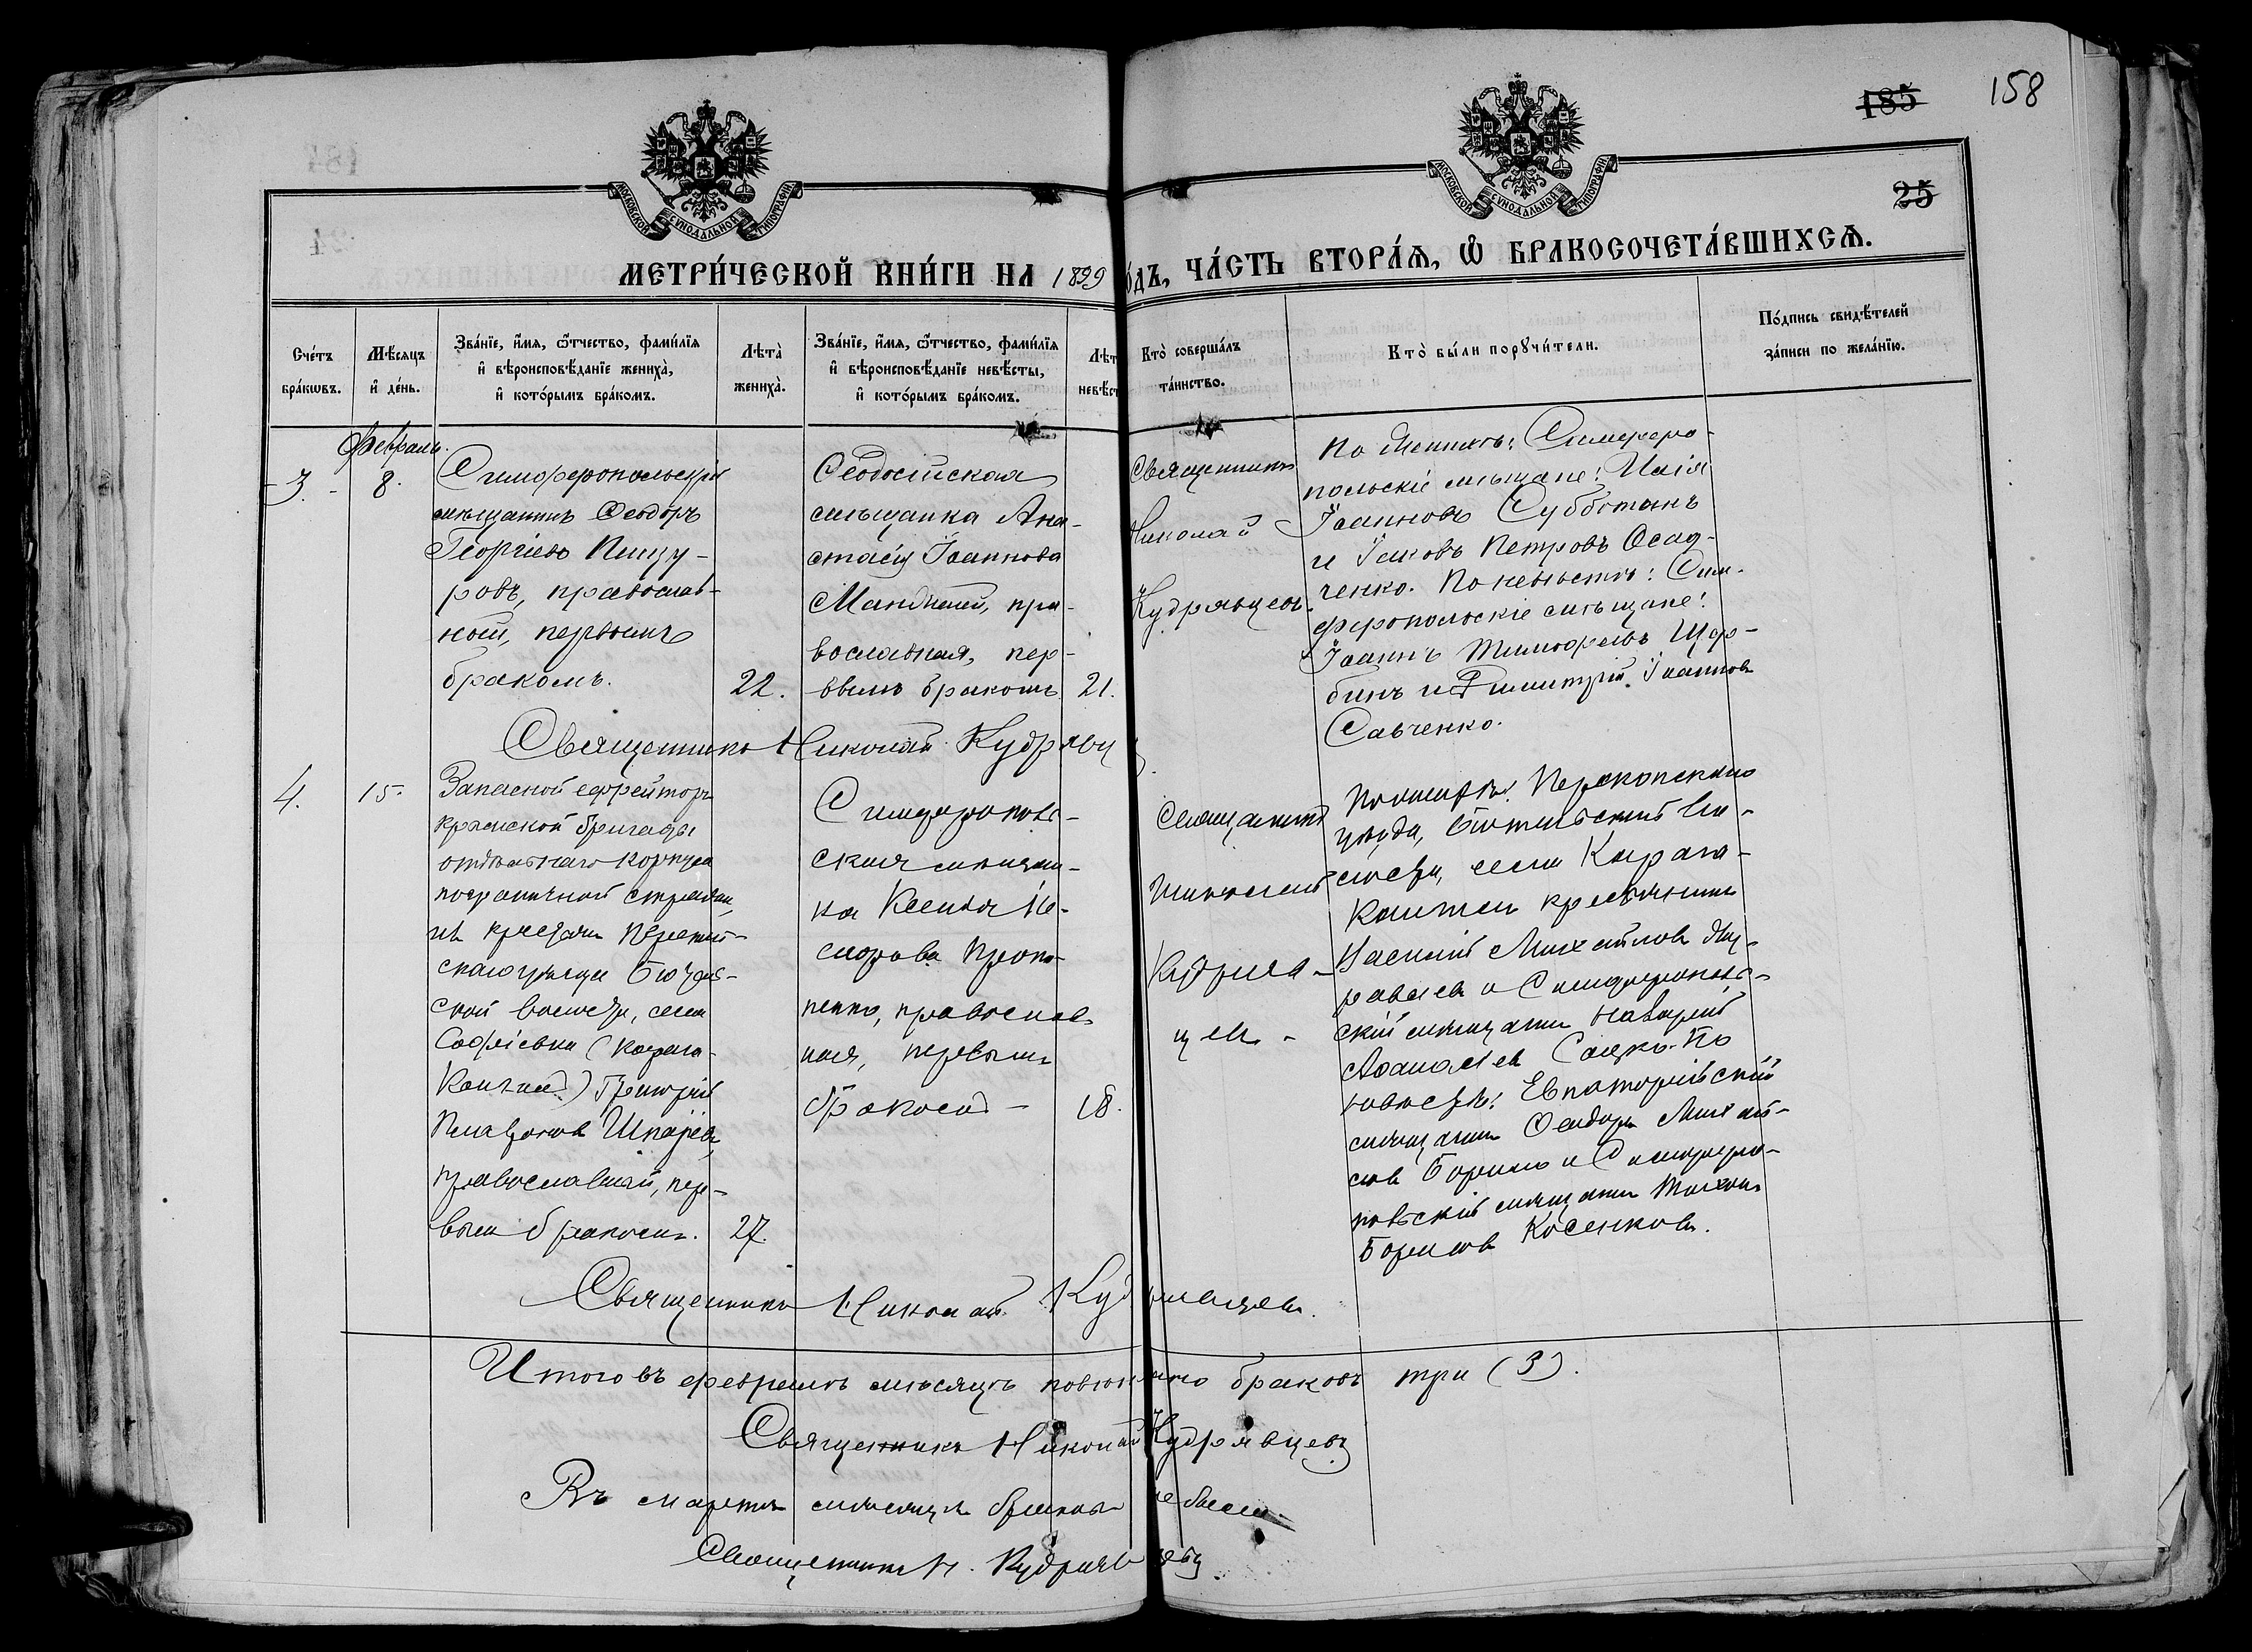 158
185
25
МОСКОВСКОЙ СѴНОДАЛЬНОЙ ТИПОГРАФІИ
МОСКОВСКОЙ СѴНОДАЛЬНОЙ ТИПОГРАФІИ
МЕТРИ́ЧЕСКОЙ КНИ́ГИ НА 1899
О́ДЪ, ЧА́СТЬ ВТОРА́Ѧ, Ѡ҆ БРАКОСОЧЕТА́ВШИХСѦ.
Сче́тъ
бра́кѡвъ.
Мѣ́сяцъ
и҆ де́нь.
Зва́нїе, и҆́мя, ѻ҆́тчество, фами́лїя
и҆ вѣроисповѣ́данїе женихà,
и҆ кото́рымъ бра́комъ.
Лѣ́та
женихà.
Зва́нїе, и҆́мя, ѻ҆́тчество, фами́лїя
и҆ вѣроисповѣ́данїе невѣ́сты,
и҆ кото́рымъ бра́комъ.
Лѣт
невѣст
Кто̀ соверша́лъ
та́инство.
Кто̀ бы́ли порꙋчи́тели.
По́дпись свидѣ́телей
за́писи по жела́нїю.
Февраль.
3.
8.
Симферопольскій
мѣщанинъ Ѳеодоръ
Георгіевъ
ровъ, православ-
ной, первымъ
бракомъ.
22.
Ѳеодосійская
мѣщанка Ана-
стасія Іоаннова
пра-
вославная, пер-
вымъ бракомъ
21.
Священникъ
Николай
Кудрявцевъ.
По женихѣ: Симферо-
польскіе мѣщане: Илія
Іоанновъ Субботинъ
и Іаковъ Петровъ Осад-
ченко. По невѣстѣ: Сим-
феропольскіе мѣщане:
Іоаннъ Тимофеевъ Щер-
бинъ и Димитрій Іоаннов
Савченко.
Священникъ Николай Кудрявц
4.
15.
Запасной ефрейторъ
крымской бригады
отдѣльнаго корпуса
пограничной стражи,
изъ крестьян Перекоп-
скаго уѣзда
ской волости, села
Софіевки (Кара-
) Григорій
Платонов
православный, пер-
вым браком.
27.
Симферополь-
ская мѣщан-
ка Ксенія
Проко-
пенко, православ-
ная, первым
бракомъ
18.
Священникъ
Николай
Кудряв-
цев.
По женихѣ: Перекопскаго
уѣзда, во-
лости, села Кара-
крестьянин
Василій Михайлов
и Симферополь-
скій мѣщанин
По
невѣстѣ: Евпаторійскій
мѣщанин Ѳеодор Михай-
лов и Симферо-
польскій мѣщанин Тихон
Борисов Косенков.
Священникъ Николай Кудрявцев.
Итого въ февралѣ мѣсяцѣ повѣнчано браковъ три (3).
Священникъ Николай Кудрявцевъ
Въ мартѣ мѣсяцѣ браков не было.
Священник Н. Кудрявцевъ.